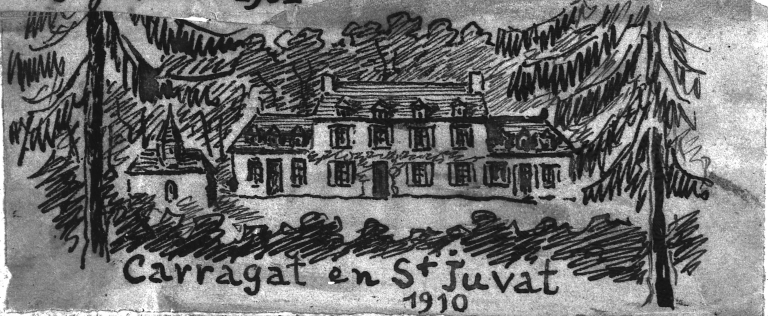 Carragat en St Juvat
1910